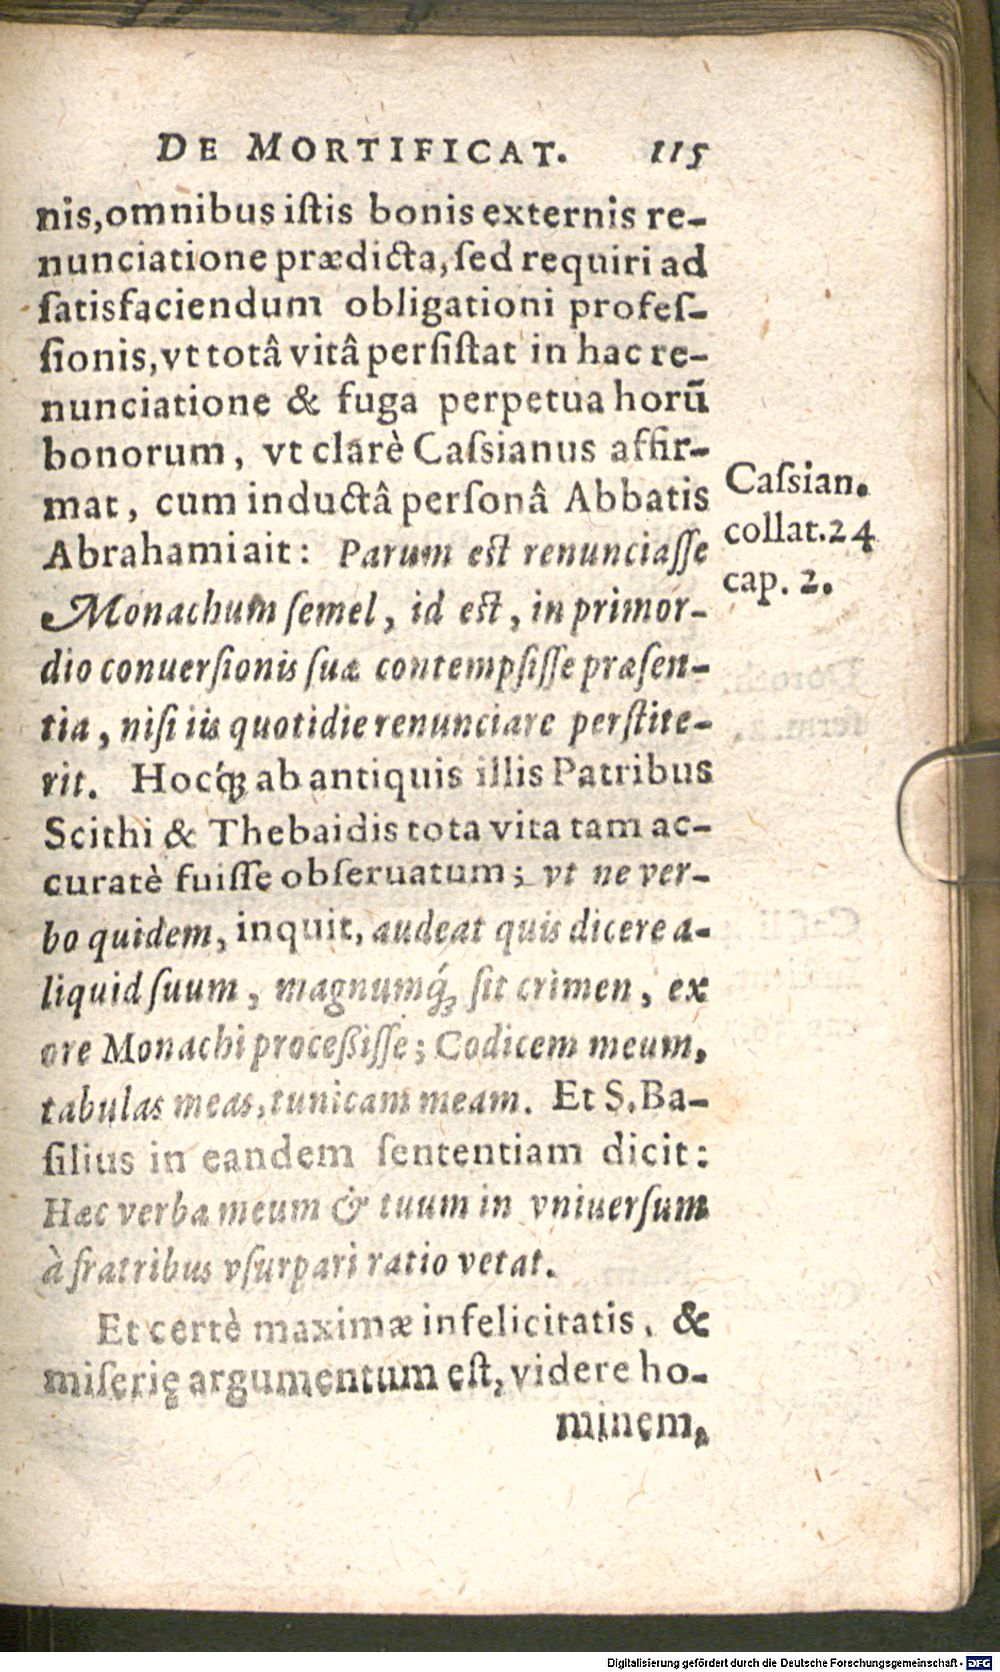 DE MORTIFICAT. 115
nis, omnibus iſtis bonis externis re-
nunciatione prædicta, ſed requiri ad
ſatisfaciendum obligationi profeſ-
ſionis, vt totâ vitâ perſiſtat in hac re-
nunciatione & fuga perpetua horū
bonorum, vt clarè Caſsianus affir-
mat, cum inductâ perſonâ Abbatis
Abrahami ait: Parum est renunciaſſe
Monachum ſemel, id est, in primor-
dio conuerſionis ſuæ contempſiſſe præſen-
tia, niſi iis quotidie renunciare perſtite-
rit. Hocq́; ab antiquis illis Patribus
Scithi & Thebaidis tota vita tam ac-
curatè fuiſſe obſeruatum; vt ne ver-
bo quidem, inquit, audeat quis dicere a-
liquid ſuum, magnumq́; ſit crimen, ex
ore Monachi proceßiſſe; Codicem meum,
tabulas meas, tunicam meam. Et S. Ba-
ſilius in eandem ſententiam dicit:
Hæc verba meum & tuum in vniuerſum
à fratribus vſurpari ratio vetat.
Et certè maximæ infelicitatis, &
miſerię argumentum eſt, videre ho-
minem,
Caſsian.
collat. 24
cap. 2.
Digitalisierung gefördert durch die Deutsche Forschungsgemeinschaft - DFG